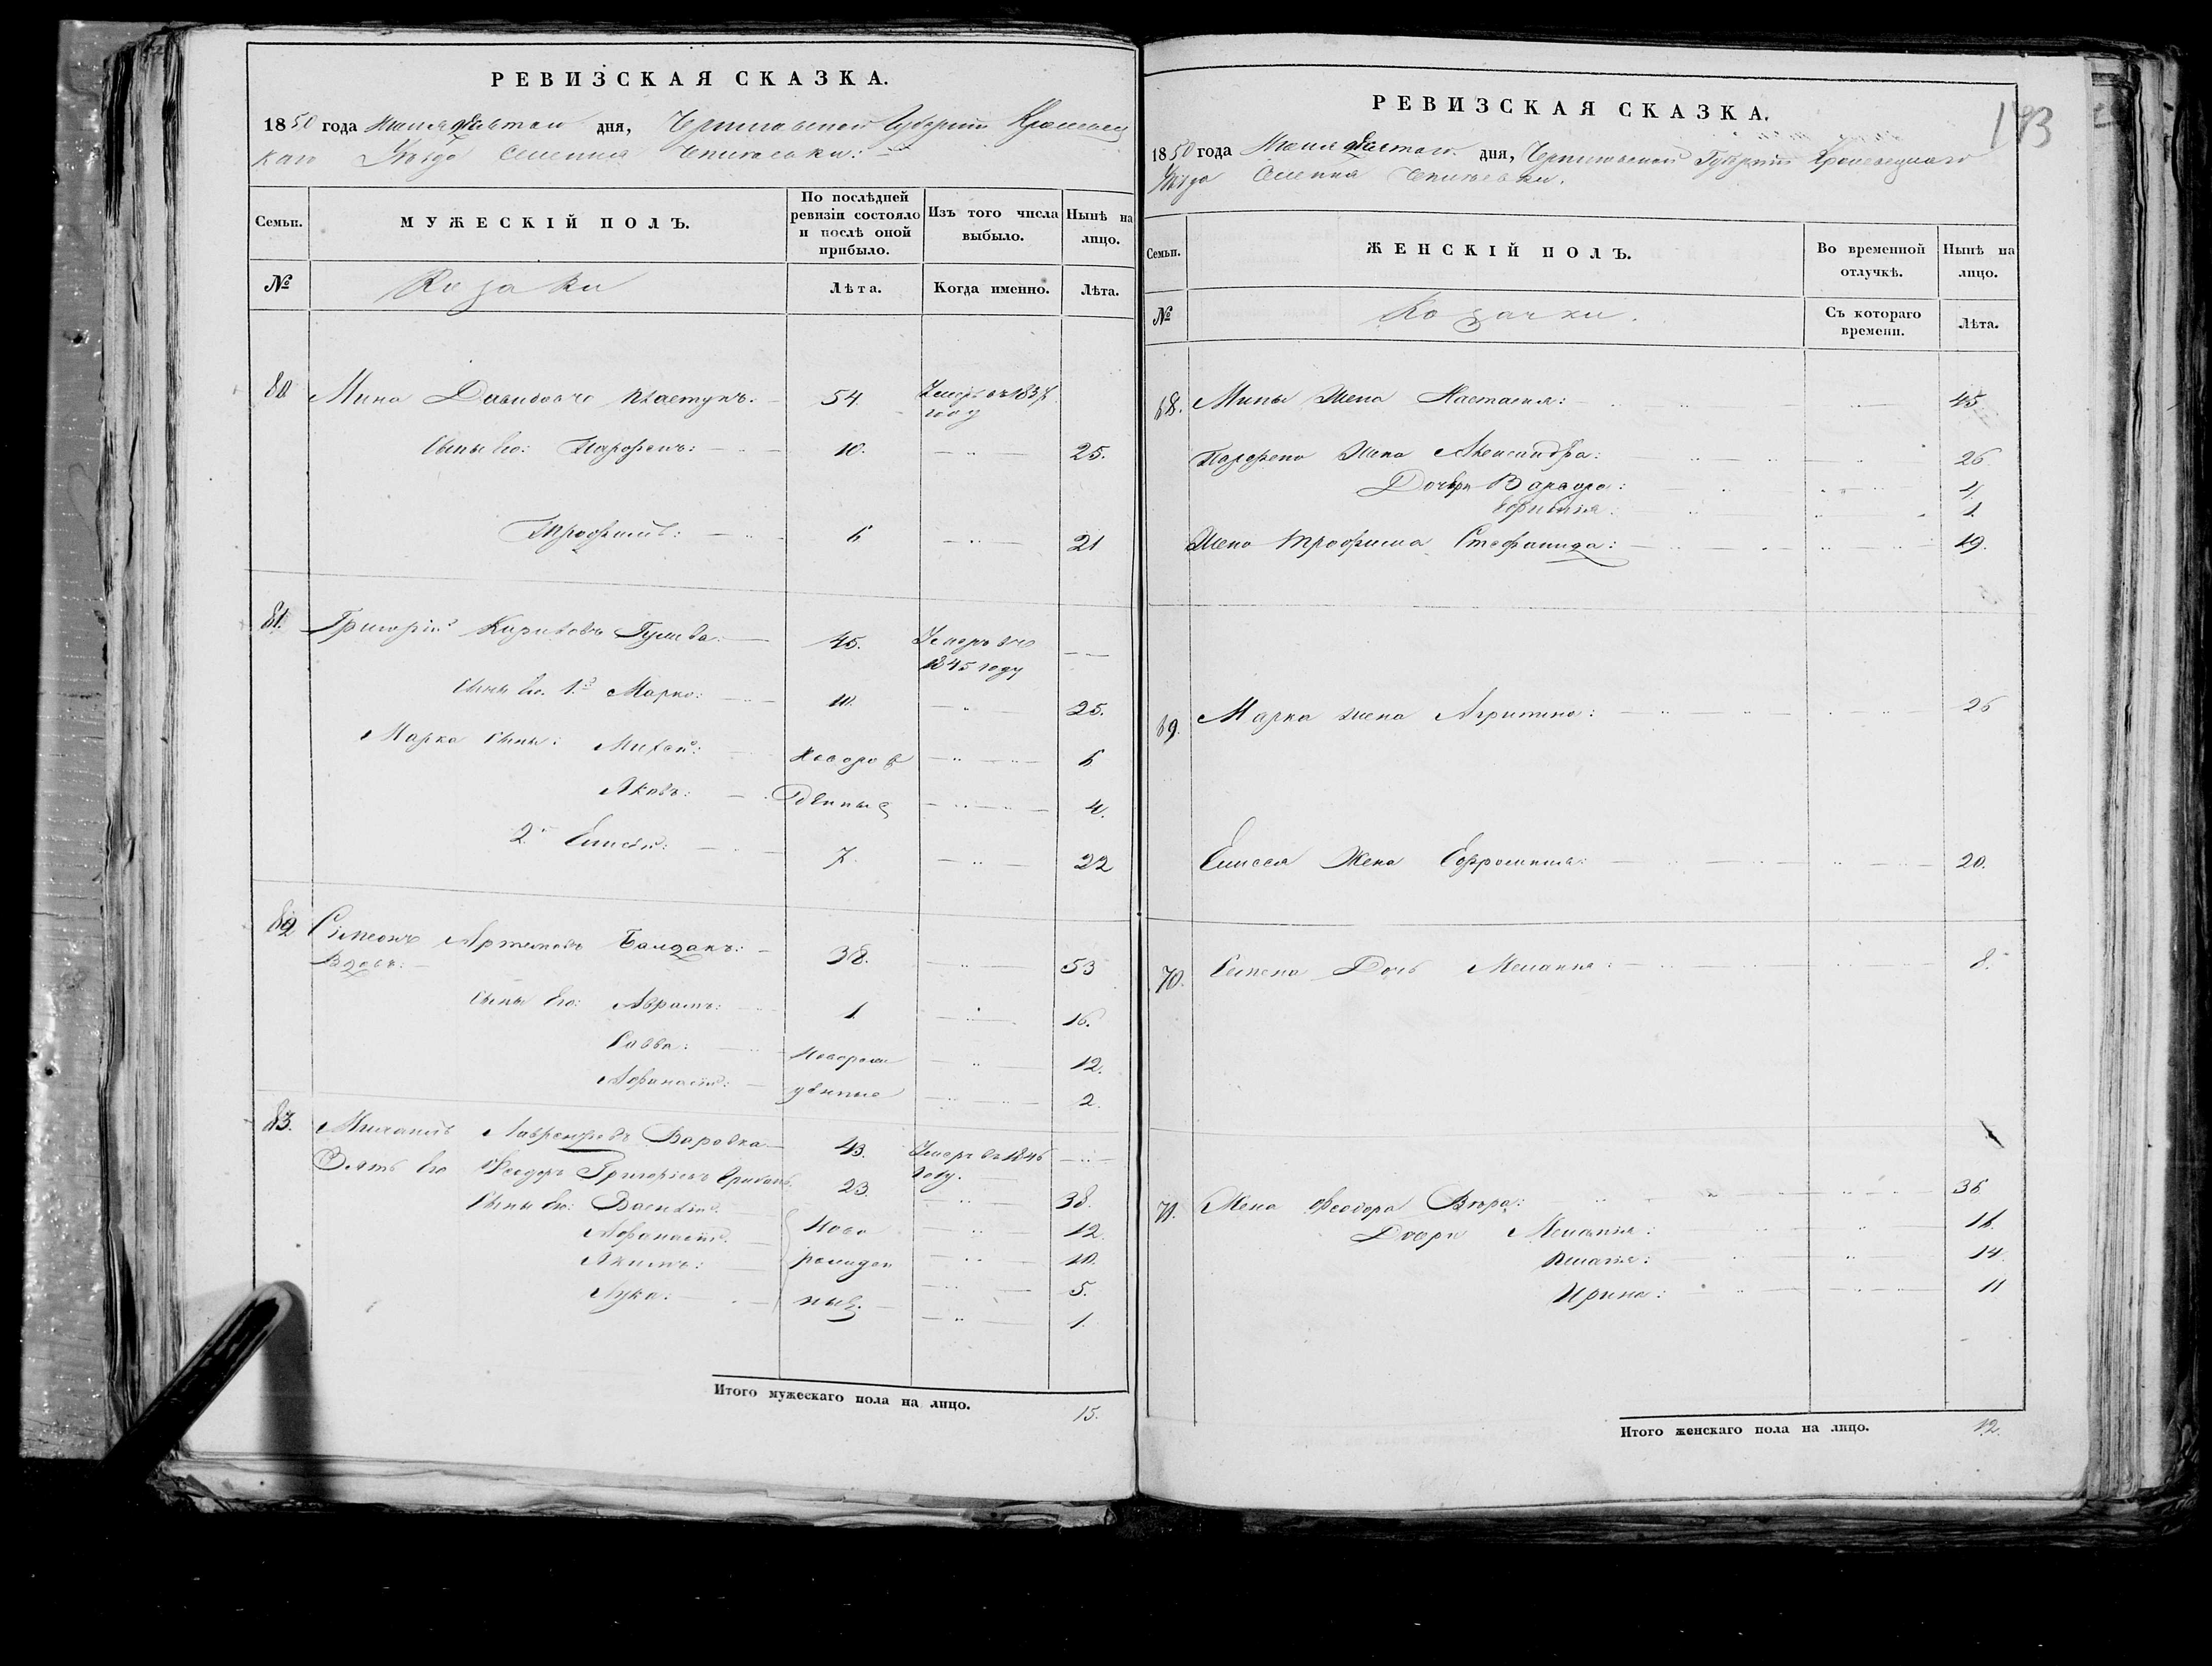 РЕВИЗСКАЯ СКАЗКА.
1850 года дня, Черниговской Губерніи Кролевец
каго Уѣзда Селенія
Семьи. МУЖЕСКІЙ ПОЛЪ. По послѣдней ревизіи состояло и послѣ оной прибыло. Изъ того числа выбыло. Нынѣ на лицо.
№ Козаки Лѣта. Когда именно. Лѣта.
80 Мина Давидовъ 54. Умеръ въ 1837 году
Сыны Его: Парфенъ: 10. 25.
Трофимъ: 6 21
81. Григорій Кириловъ 45. Умеръ въ 1845 году
Сыны Его. 1й Марко: 10. 25.
Марка Сыны: Михей: Новорож 6
Яковъ: денные 4.
2й Елисѣй: 7. 22
82 Симеонъ Артемовъ Балдакъ: 38. 53
Вдовъ:
Сыны Его: Абрамъ: 1 16.
Савва: Новорож 12.
Афанасій: денные 2.
83. Михаилъ Лаврентьевъ 43. Умеръ въ 1846 году.
Зять Его Феодоръ Григорьевъ 23. 38.
Сыны Его: Василій: Ново 12
Афанасій: 10.
Акимъ: рожден 5.
Лука: ные. 1.
Итого мужескаго пола на лицо. 15.
193
РЕВИЗСКАЯ СКАЗКА.
1850 года дня, Черниговской Губерніи Кролевецкаго
Уѣзда Селенія
Семьи. ЖЕНСКІЙ ПОЛЪ. Во временной отлучкѣ. Нынѣ на лицо.
№ Козачки. Съ котораго времени. Лѣта.
68. Мины Жена Настасія: 45
Парфена Жена Александра: 26
Дочери Варвара: 4.
1.
Жена Трофима Стефанида: 19.
69. Марка жена Агрипина: 26
Елисея Жена Ефросинія: 20.
70. Семена Дочь Меланія: 8.
71. Жена Феодора 36
Дочери Меланія: 16.
14.
Ирина: 11
Итого женскаго пола на лицо. 12.